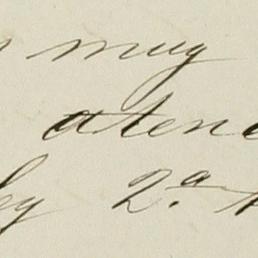 muy
aten
ey 2.a